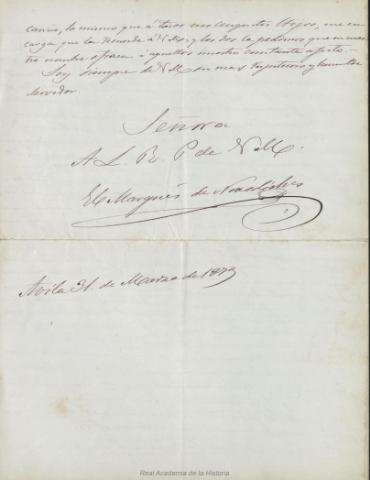 cariño, lo mismo que a todos sus Augustos Hijos, me en-
carga que la recuerde a V.M., y los dos la pedimos que en nues-
tro nombre ofrezca á aquellos nuestro constante afecto.
Soy siempre de V.M. su mas respetuoso y humilde
servidor.
Señora
A L. R. P. de V.M.
El Marqués de Novaliches
Avila 31 de Marzo de 1879
Real Academia de la Historia